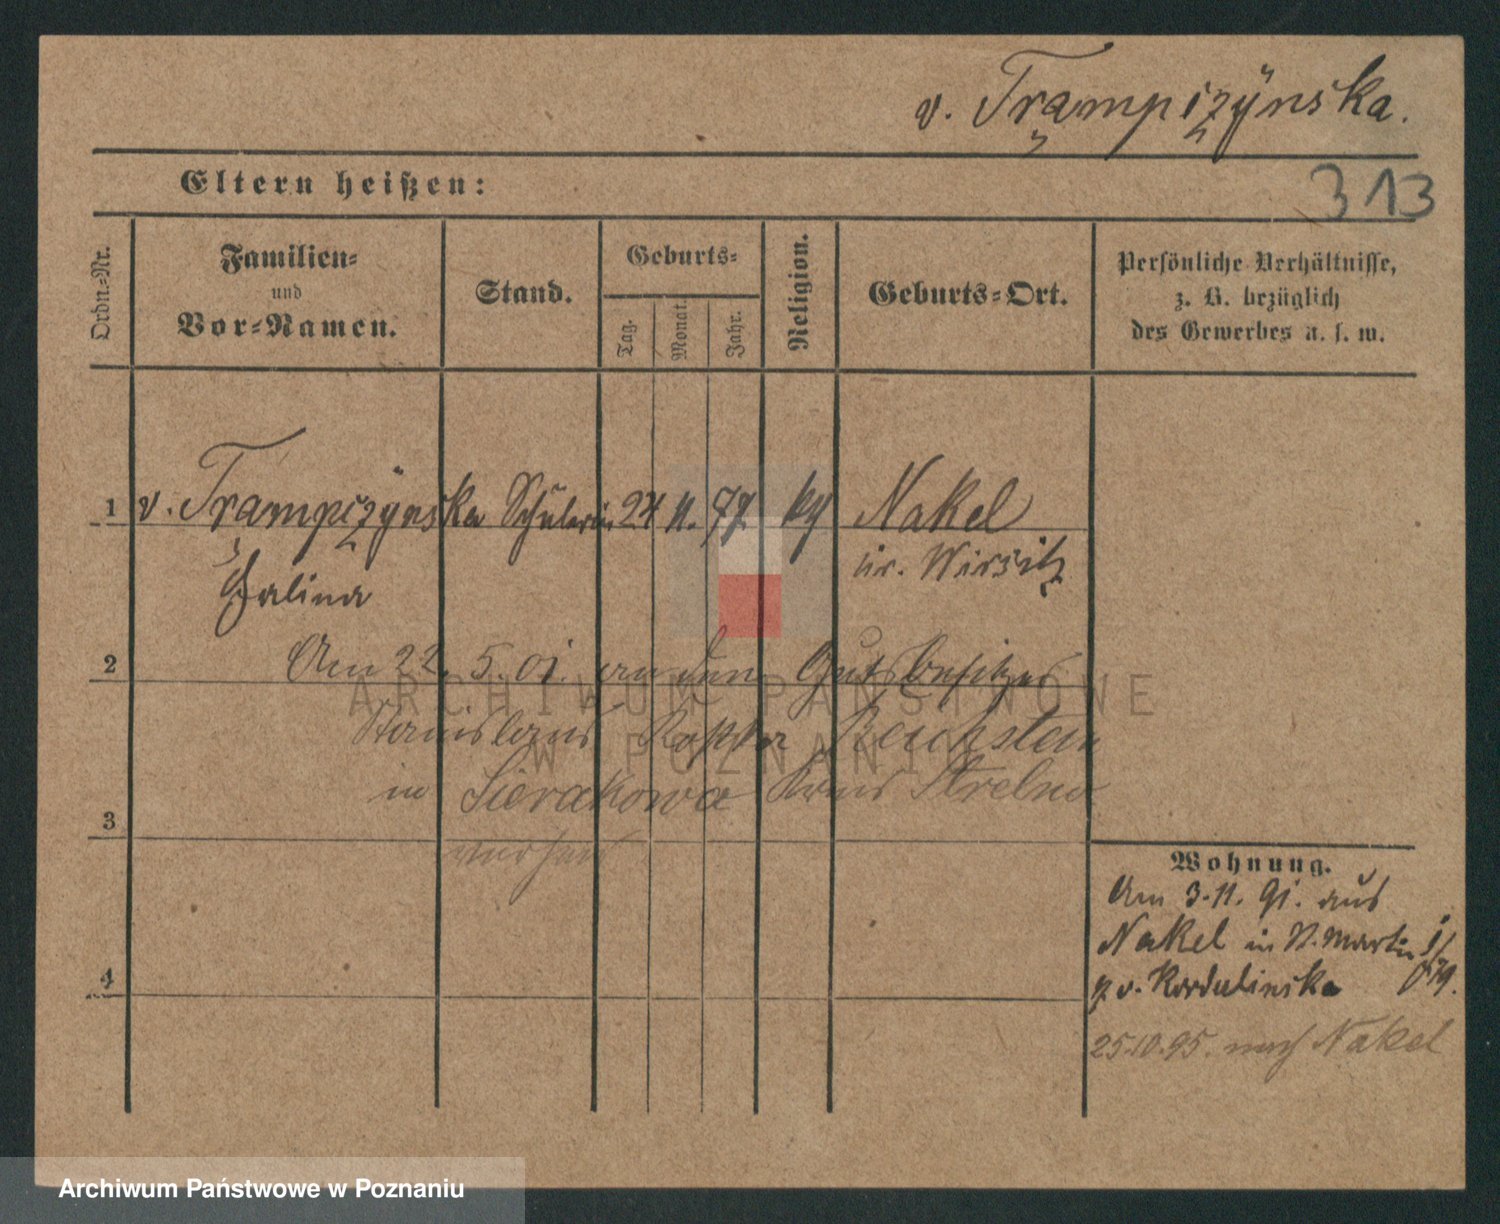 v. Trąmpczÿnska.
Eltern heißen:
313
Ordn.-Nr.
Familien-
und
Vor-Namen.
Stand.
Geburts-
Tag.
Monat.
Jahr.
Religion.
Geburts-Ort.
Persönliche Verhältnisse,
z. B. bezüglich
des Gewerbes u. s. w.
1 v. Trąmpczÿnska Schülerin 24 11. 77 kg Nakel
Kr. Wirsitz
Halina
2 Am 22. 5. 01. an den Gutsbesitzer
Stanislaus Reichstein
in Sierakowo Kreis Strelno
3
verh
Wohnung.
Am 3.11. 91. aus
Nakel in St. Martin
b. v. Kordulinska
4
25.10.95. nach Nakel
ARCHIWUM PAŃSTWOWE
W POZNANIU
Archiwum Państwowe w Poznaniu